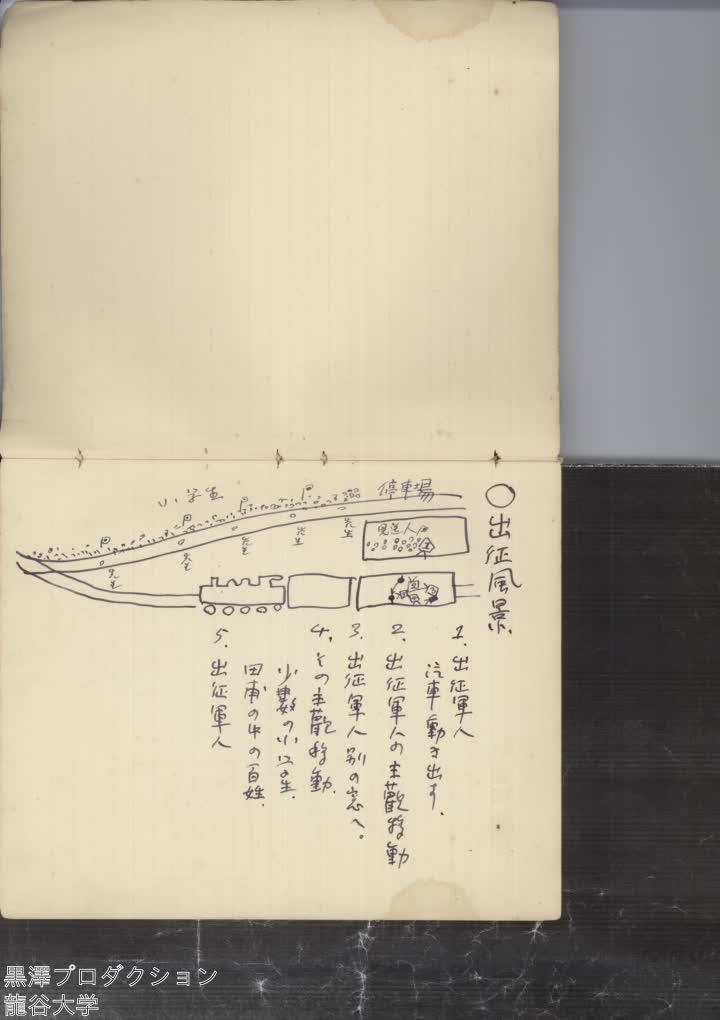 ○出征風景
停車場
小学生
見送人
先生
先生
先生
先生
先生
1. 出征軍人
汽車動き出す、
2. 出征軍人の主觀移動
3. 出征軍人別の窓へ。
4. その主觀移動、
少数の小学生、
田甫の中の百姓、
5. 出征軍人
黒澤プロダクション
龍谷大学